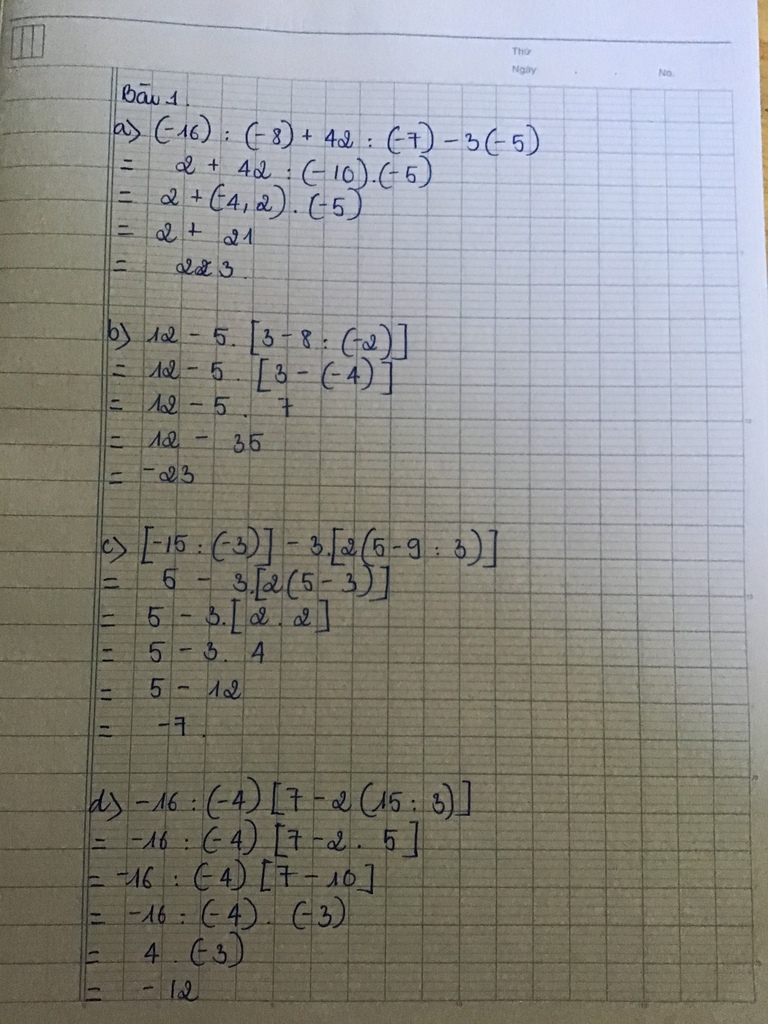 Thứ
Ngày
No.
Bài 1.
a) (-16) : (-8) + 42 : (-7) - 3(-5)
= 2 + 42 : (-10).(-5)
= 2 + (-4,2). (-5)
= 2 + 21
= 23.
b) 12 - 5. [3 - 8 : (-2)]
= 12 - 5 . [3 - (-4)]
= 12 - 5 . 7
= 12 - 35
= -23
c) [-15 : (-3)] - 3.[2(5-9 : 3)]
= 5 - 3.[2(5-3)]
= 5 - 3.[2 . 2]
= 5 - 3. 4
= 5 - 12
= -7.
d) -16 : (-4) [7 - 2 (15 : 3)]
= -16 : (-4) [7 - 2 . 5]
= -16 : (-4) [7 - 10]
= -16 : (-4). (-3)
= 4 . (-3)
= -12